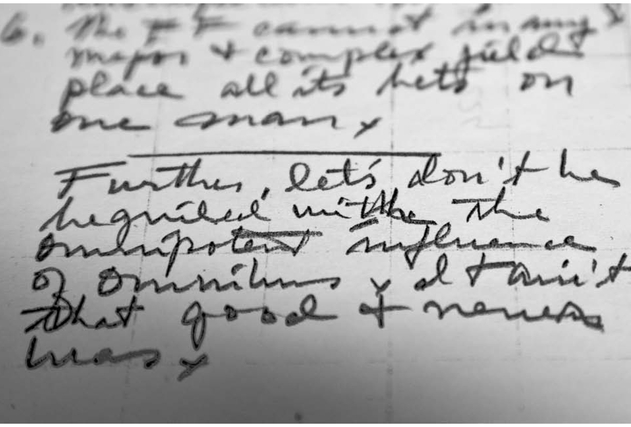 6. The FF cannot in any x
major & complex field
place all its bets on
one man x
Further, let's don't be
beguiled with the
omnipotent influence
of Omnibus x It ain't
that good & never
was x